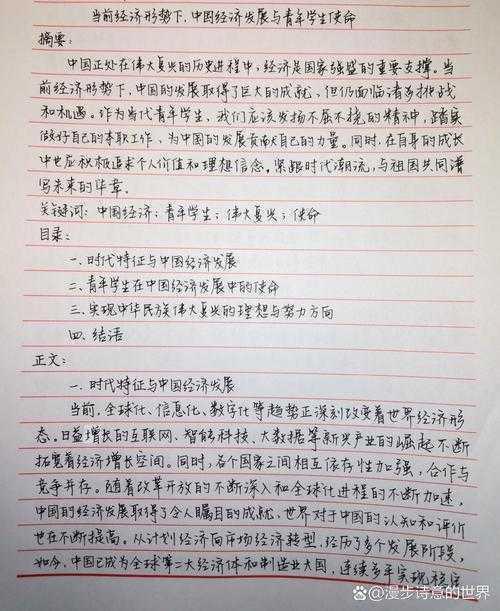 当前经济形势下,中国经济发展与青年学生使命
摘要:
中国正处在伟大复兴的历史进程中,经济是国家强盛的重要支撑。当
前经济形势下,中国的发展取得了巨大的成就,但仍面临诸多挑战
和机遇。作为当代青年学生,我们应该发扬不屈不挠的精神,踏实
做好自己的本职工作,为中国的发展贡献自己的力量。同时,在自身的成长
中也应积极追求个人价值和理想信念。紧跟时代潮流,与祖国共同谱
写未来的华章。
关键词:中国经济;青年学生;伟大复兴;使命
目录:
一.时代特征与中国经济发展
二.青年学生在中国经济发展中的使命
三.实现中华民族伟大复兴的理想与努力方向
四.结语
正文:
一.时代特征与中国经济发展
当前,全球化、信息化、数字化等趋势正深刻改变着世界经济形
态。日益增长的互联网、智能科技、大数据等新兴产业的崛起不断
拓宽着经济增长空间。同时,各个国家之间相互依存性加强,合作与
竞争并存。随着改革开放的不断深入和全球化进程的不断加速,
中国的经济发展取得了令人瞩目的成就,世界对于中国的认知和评价
也在不断提高。从计划经济向市场经济转型,经历了多个发展阶段,
如今,中国已成为全球第二大经济体和制造业大国,连续多年实现稳定
@漫步诗意的世界